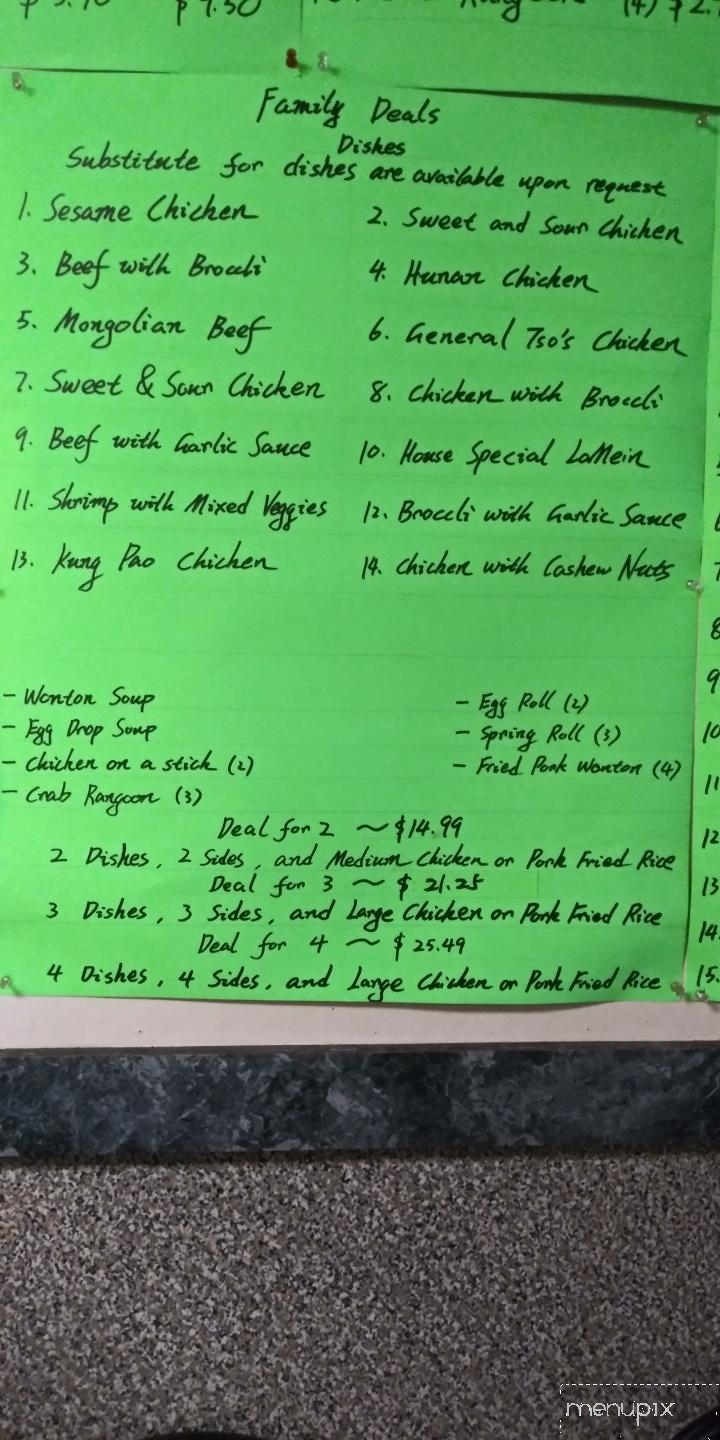 $ 9.50
(4) $ 2.
Family Deals
Dishes
Substitute for dishes are available upon request
1. Sesame Chicken
2. Sweet and Sour Chicken
3. Beef with Broccli
4. Hunan Chicken
5. Mongolian Beef
6. General Tso's Chicken
7. Sweet & Sour Chicken
8. Chicken with Broccli
9. Beef with Garlic Sauce
10. House Special LoMein
11. Shrimp with Mixed Veggies
12. Broccli with Garlic Sauce
13. Kung Pao Chicken
14. Chicken with Cashew Nuts
- Wonton Soup
- Egg Roll (2)
- Egg Drop Soup
- Spring Roll (3)
- Chicken on a stick (2)
- Fried Pork Wonton (4)
- Crab Rangoon (3)
Deal for 2 ~ $14.99
2 Dishes, 2 Sides, and Medium Chicken or Pork Fried Rice
Deal for 3 ~ $ 21.25
3 Dishes, 3 Sides, and Large Chicken or Pork Fried Rice
Deal for 4 ~ $ 25.49
4 Dishes, 4 Sides, and Large Chicken or Pork Fried Rice
8
9
10
11
12
13
14.
15.
menupix